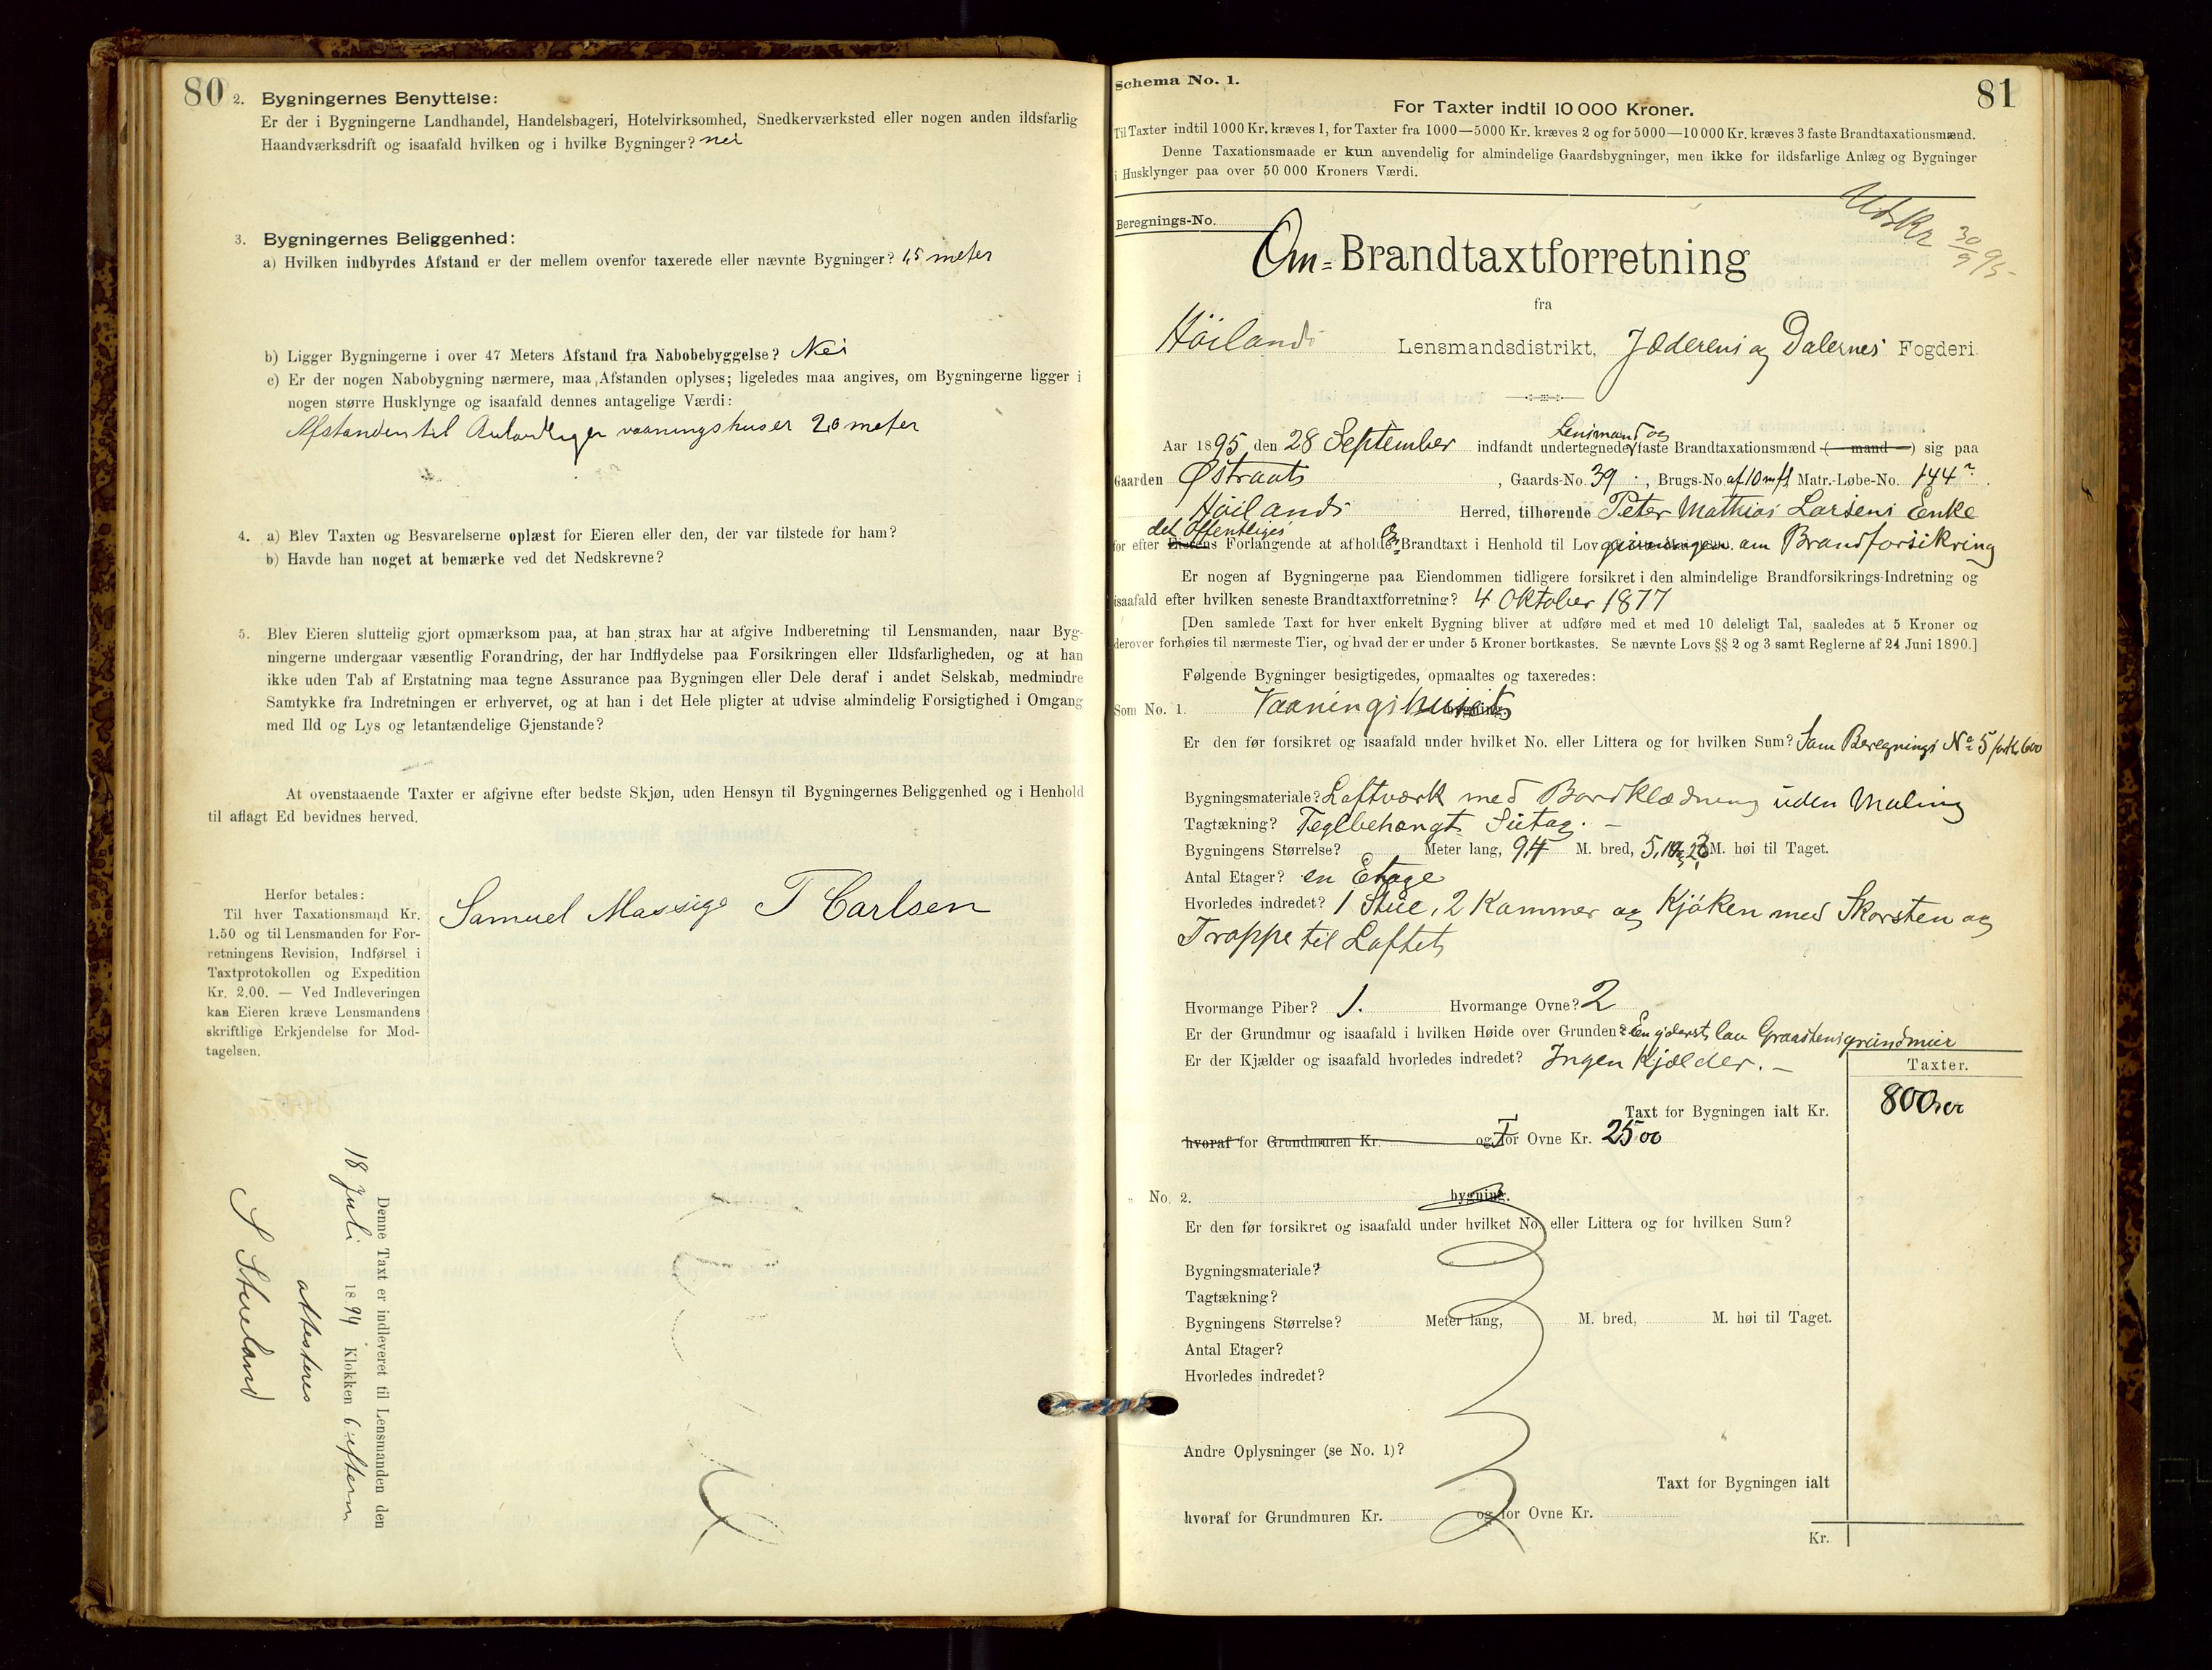 80
2. Bygningernes Benyttelse:
Er der i Bygningerne Landhandel, Handelsbageri, Hotelvirksomhed, Snedkerværksted eller nogen anden ildsfarlig
Haandværksdrift og isaafald hvilken og i hvilke Bygninger? nei
3. Bygningernes Beliggenhed:
a) Hvilken indbyrdes Afstand er der mellem ovenfor taxerede eller nævnte Bygninger? 1,5 meter
b) Ligger Bygningerne i over 47 Meters Afstand fra Nabobebyggelse? Nei
c) Er der nogen Nabobygning nærmere, maa Afstanden oplyses; ligeledes maa angives, om Bygningerne ligger i
nogen større Husklynge og isaafald dennes antagelige Værdi:
Afstanden til vaaningshuser 20 meter
4. a) Blev Taxten og Besvarelserne oplæst for Eieren eller den, der var tilstede for ham?
b) Havde han noget at bemærke ved det Nedskrevne?
5. Blev Eieren sluttelig gjort opmærksom paa, at han strax har at afgive Indberetning til Lensmanden, naar Byg-
ningerne undergaar væsentlig Forandring, der har Indflydelse paa Forsikringen eller Ildsfarligheden, og at han
ikke uden Tab af Erstatning maa tegne Assurance paa Bygningen eller Dele deraf i andet Selskab, medmindre
Samtykke fra Indretningen er erhvervet, og at han i det Hele pligter at udvise almindelig Forsigtighed i Omgang
med Ild og Lys og letantændelige Gjenstande?
At ovenstaaende Taxter er afgivne efter bedste Skjøn, uden Hensyn til Bygningernes Beliggenhed og i Henhold
til aflagt Ed bevidnes herved.
Herfor betales:
Til hver Taxationsmand Kr.
1.50 og til Lensmanden for For-
retningens Revision, Indførsel i
Taxtprotokollen og Expedition
Kr. 2.00. — Ved Indleveringen
kan Eieren kræve Lensmandens
skriftlige Erkjendelse for Mod-
tagelsen.
Samuel Massige T Carlsen
Denne Taxt er indleveret til Lensmanden den
18 Juli 1894 Klokken 6 eftern
attesteres
S Stueland
Schema No. 1.
81
For Taxter indtil 10 000 Kroner.
Til Taxter indtil 1000 Kr. kræves 1, for Taxter fra 1000—5000 Kr. kræves 2 og for 5000—10 000 Kr. kræves 3 faste Brandtaxationsmænd.
Denne Taxationsmaade er kun anvendelig for almindelige Gaardsbygninger, men ikke for ildsfarlige Anlæg og Bygninger
i Husklynger paa over 50 000 Kroners Værdi.
Udskr 30/9 95
Beregnings-No.
Om= Brandtaxtforretning
fra
Höilands Lensmandsdistrikt, Jæderens og Dalernes Fogderi
Lensmand og
Aar 1895 den 28 September indfandt undertegnede faste Brandtaxationsmænd ( mand ) sig paa
Gaarden Østraats, Gaards-No. 39, Brugs-No. af 10 mfl Matr.-Løbe-No. 144
Höilands Herred, tilhørende Peter Mathias Larsens Enke
det Offentliges
for efter Eierens Forlangende at afholde Om Brandtaxt i Henhold til Lovgivningen om Brandforsikring
Er nogen af Bygningerne paa Eiendommen tidligere forsikret i den almindelige Brandforsikrings-Indretning og
isaafald efter hvilken seneste Brandtaxtforretning? 4 Oktober 1877
[Den samlede Taxt for hver enkelt Bygning bliver at udføre med et med 10 deleligt Tal, saaledes at 5 Kroner og
derover forhøies til nærmeste Tier, og hvad der er under 5 Kroner bortkastes. Se nævnte Lovs §§ 2 og 3 samt Reglerne af 24 Juni 1890.]
Følgende Bygninger besigtigedes, opmaaltes og taxeredes:
Som No. 1. Vaaningshuset bygning.
Er den før forsikret og isaafald under hvilket No. eller Littera og for hvilken Sum? Som Beregnings No 5 for Kr 600
Bygningsmateriale? Loftværk med Bordklædning uden Maling
Tagtækning? Teglbehængt Sutag. –
Bygningens Størrelse? Meter lang, 9,4 M. bred, 5,1 M. høi til Taget.
Antal Etager? en Etage
Hvorledes indredet? 1 Stue, 2 Kammer og Kjøken med Skorsten og
Trappe til Loftet
Hvormange Piber? 1. Hvormange Ovne? 2
Er der Grundmur og isaafald i hvilken Høide over Grunden? En yderst lav Graastensgrundmur
Er der Kjælder og isaafald hvorledes indredet? Ingen Kjælder. –
Taxter.
Taxt for Bygningen ialt Kr. 800
hvoraf for Grundmuren Kr. og for Ovne Kr. 25 00
No. 2. bygning.
Er den før forsikret og isaafald under hvilket No. eller Littera og for hvilken Sum?
Bygningsmateriale?
Tagtækning?
Bygningens Størrelse? Meter lang, M. bred, M. høi til Taget.
Antal Etager?
Hvorledes indredet?
Andre Oplysninger (se No. 1)?
Taxt for Bygningen ialt
hvoraf for Grundmuren Kr. og for Ovne Kr.
Kr.